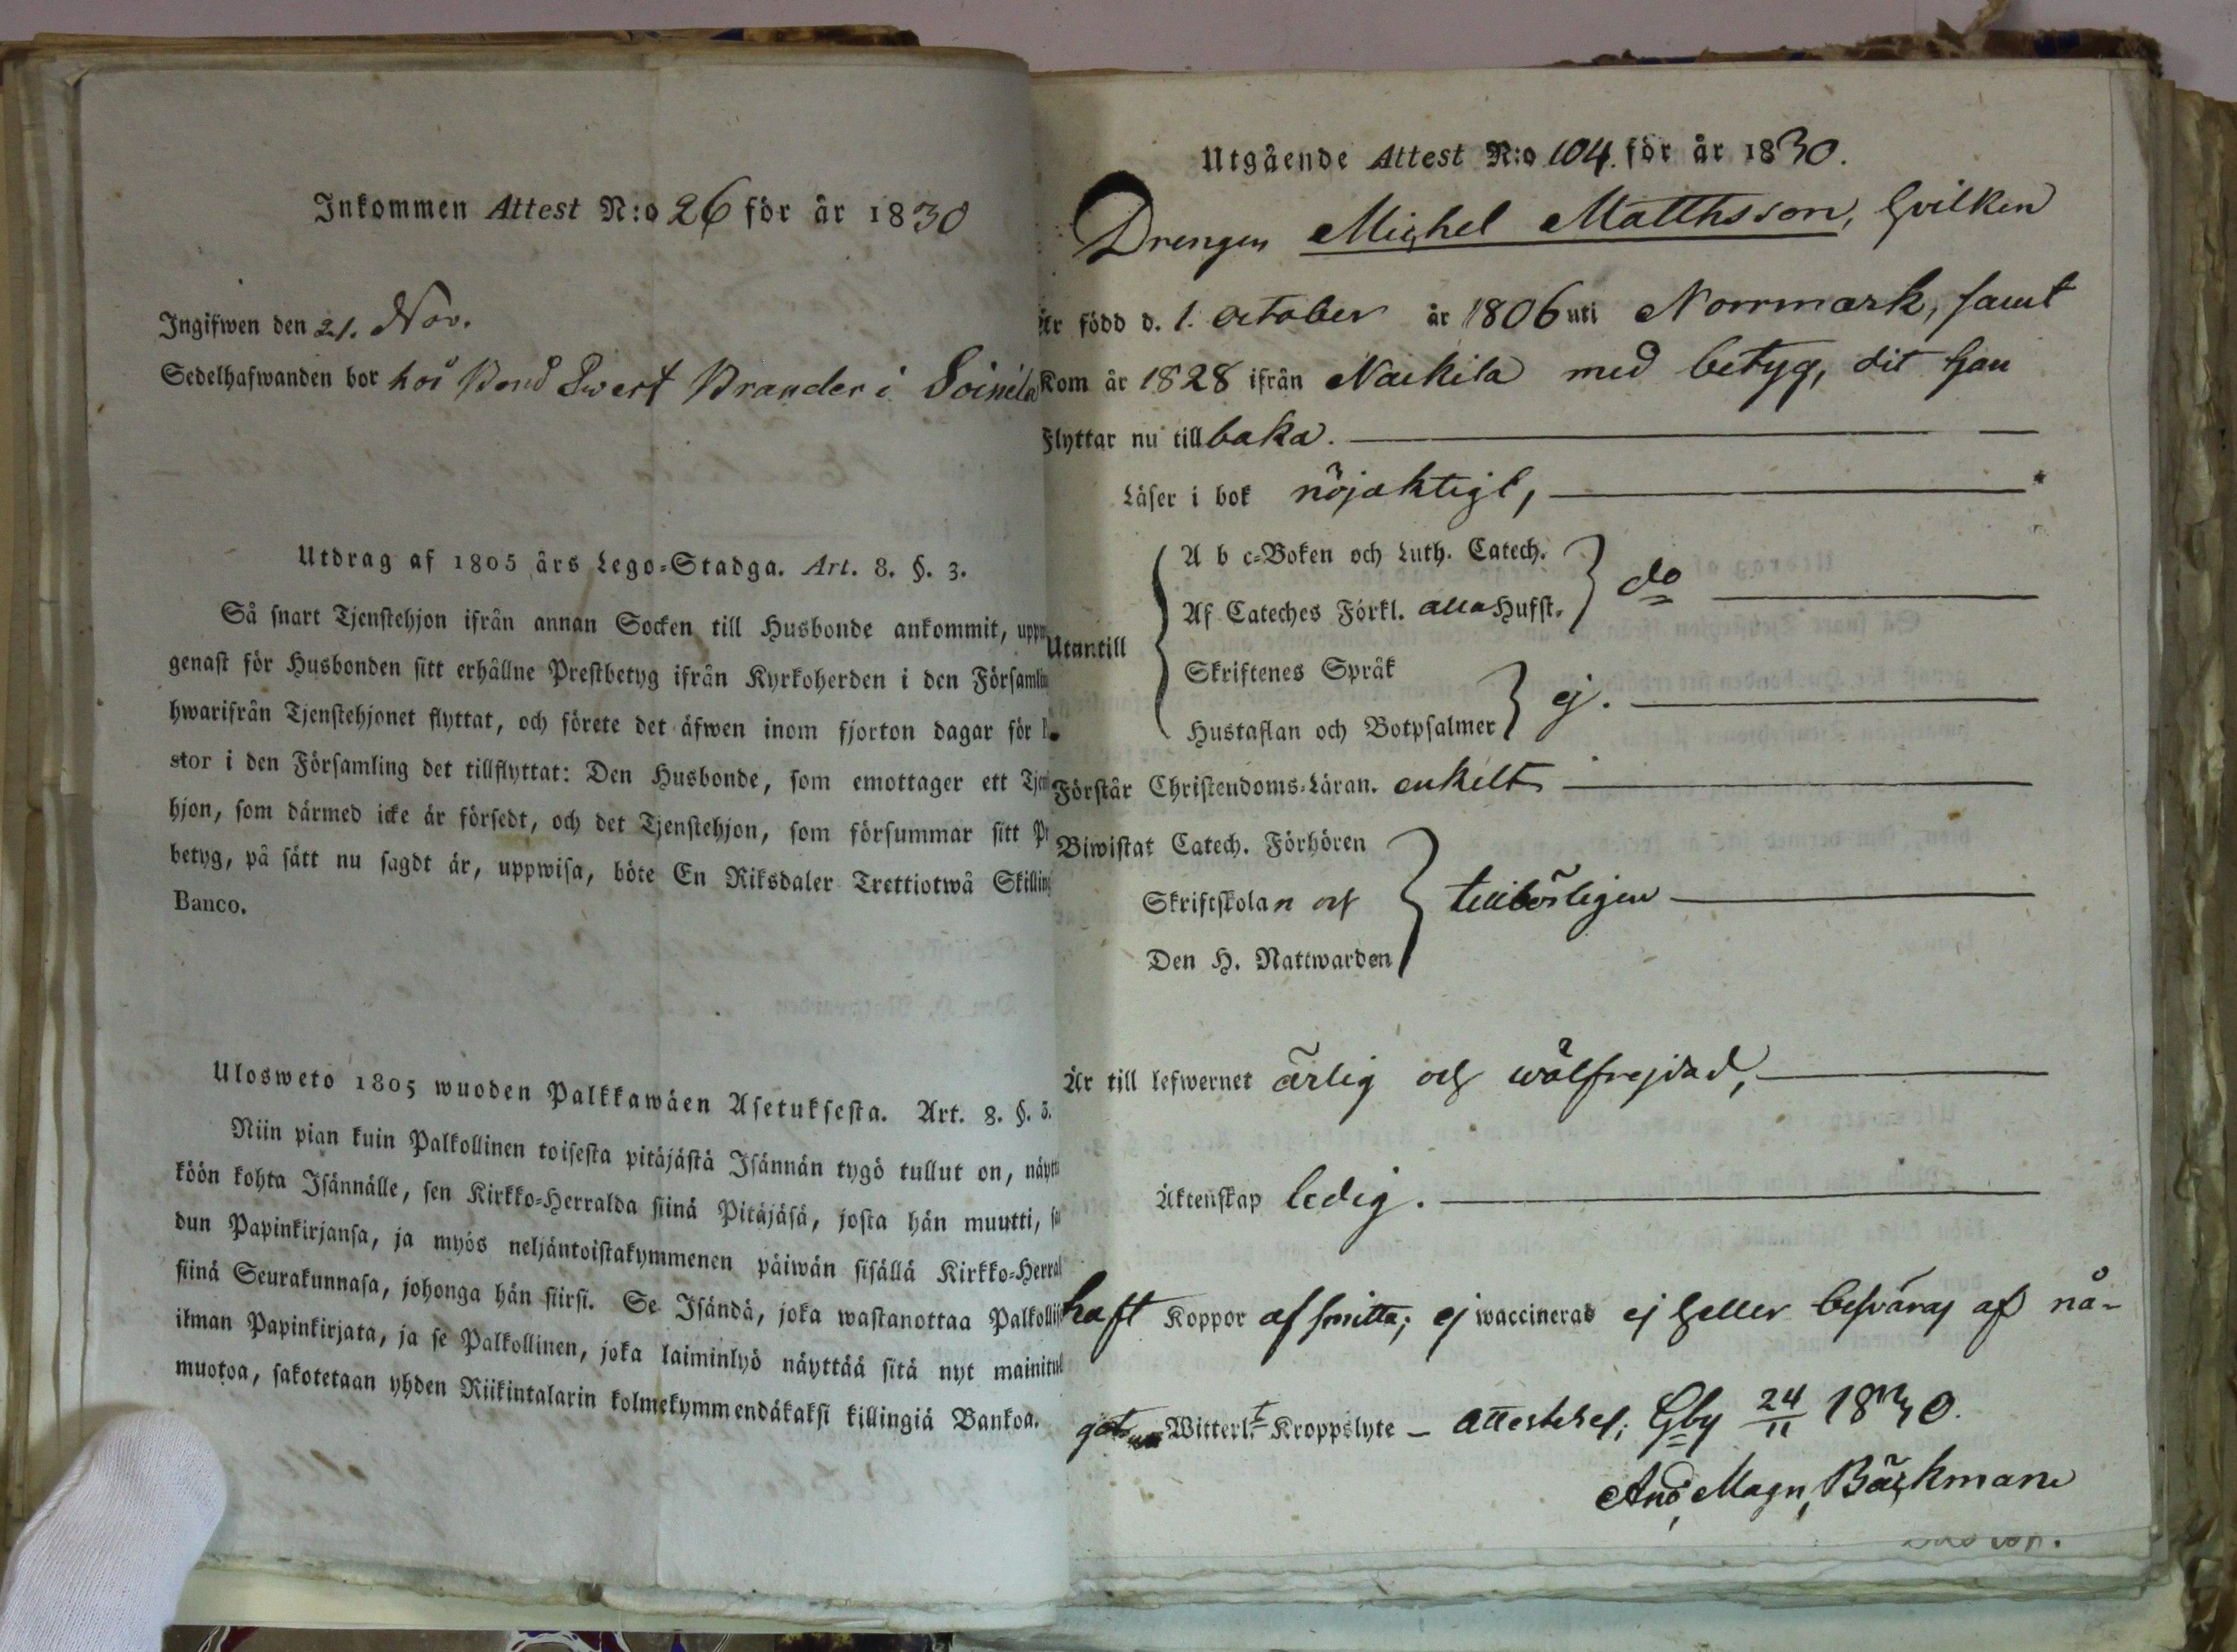 Inkommen Attest N:o 26 för år 1830
Ingifwen den 21. Nov.
Sedelhafwanden bor hos Bond Swert Brander i Soinila
Utdrag af 1805 års Lego-Stadga. Art. 8. §. 3.
Så snart Tjenstehjon ifrån annan Socken till Husbonde ankommit, uppw
genast för Husbonden sitt erhållne Prestbetyg ifrån Kyrkoherden i den Församlin
hwarifrån Tjenstehjonet flyttat, och förete det äfwen inom fjorton dagar för P
stor i den Församling det tillflyttat: Den Husbonde, som emottager ett Tjen
hjon, som därmed icke är försedt, och det Tjenstehjon, som försummar sitt Pr
betyg, på sätt nu sagdt är, uppwisa, böte En Riksdaler Trettiotwå Skilling
Banco.
Ulosweto 1805 wuoden Palkkawäen Asetuksesta. Art. 8. §. 3.
Niin pian kuin Palkollinen toisesta pitäjästä Isännän tygö tullut on, näyttä
köön kohta Isännälle, sen Kirkko-Herralda siinä Pitäjäsä, josta hän muutti, sa
dun Papinkirjansa, ja myös neljäntoistakymmenen päiwän sisällä Kirkko-Herral
siinä Seurakunnasa, johonga hän siirsi. Se Isändä, joka wastanottaa Palkollis
ilman Papinkirjata, ja se Palkollinen, joka laiminlyö näyttää sitä nyt mainitul
muotoa, sakotetaan yhden Riikintalarin kolmekymmendäkaksi killingiä Bankoa.
Utgående Attest N:o 104. för år 1830.
Drengen Michel Matthsson, hvilken
Är född d. 1. October år 1806 uti Norrmark, samt
Kom år 1828 ifrån Nackila med betyg, dit han
Flyttar nu tillbaka.
Läser i bok nöjaktigt,
A b c-Boken och Luth. Catech.
Af Cateches Förkl. alla Hufst. do
Utantill
Skriftenes Språk
Hustaflan och Botpsalmer ej.
Förstår Christendoms-Läran. enkelt
Biwistat Catech. Förhören
Skriftskolan och tillbörligen
Den H. Nattwarden
Är till lefwernet ärlig och wälfrejdad,
Äktenskap ledig.
haft Koppor af smitta; ej waccinerad ej heller besväras af nå-
got Witterl.t Kroppslyte - attesteras; Gby 24/11 1830.
And. Magn. Bäckman